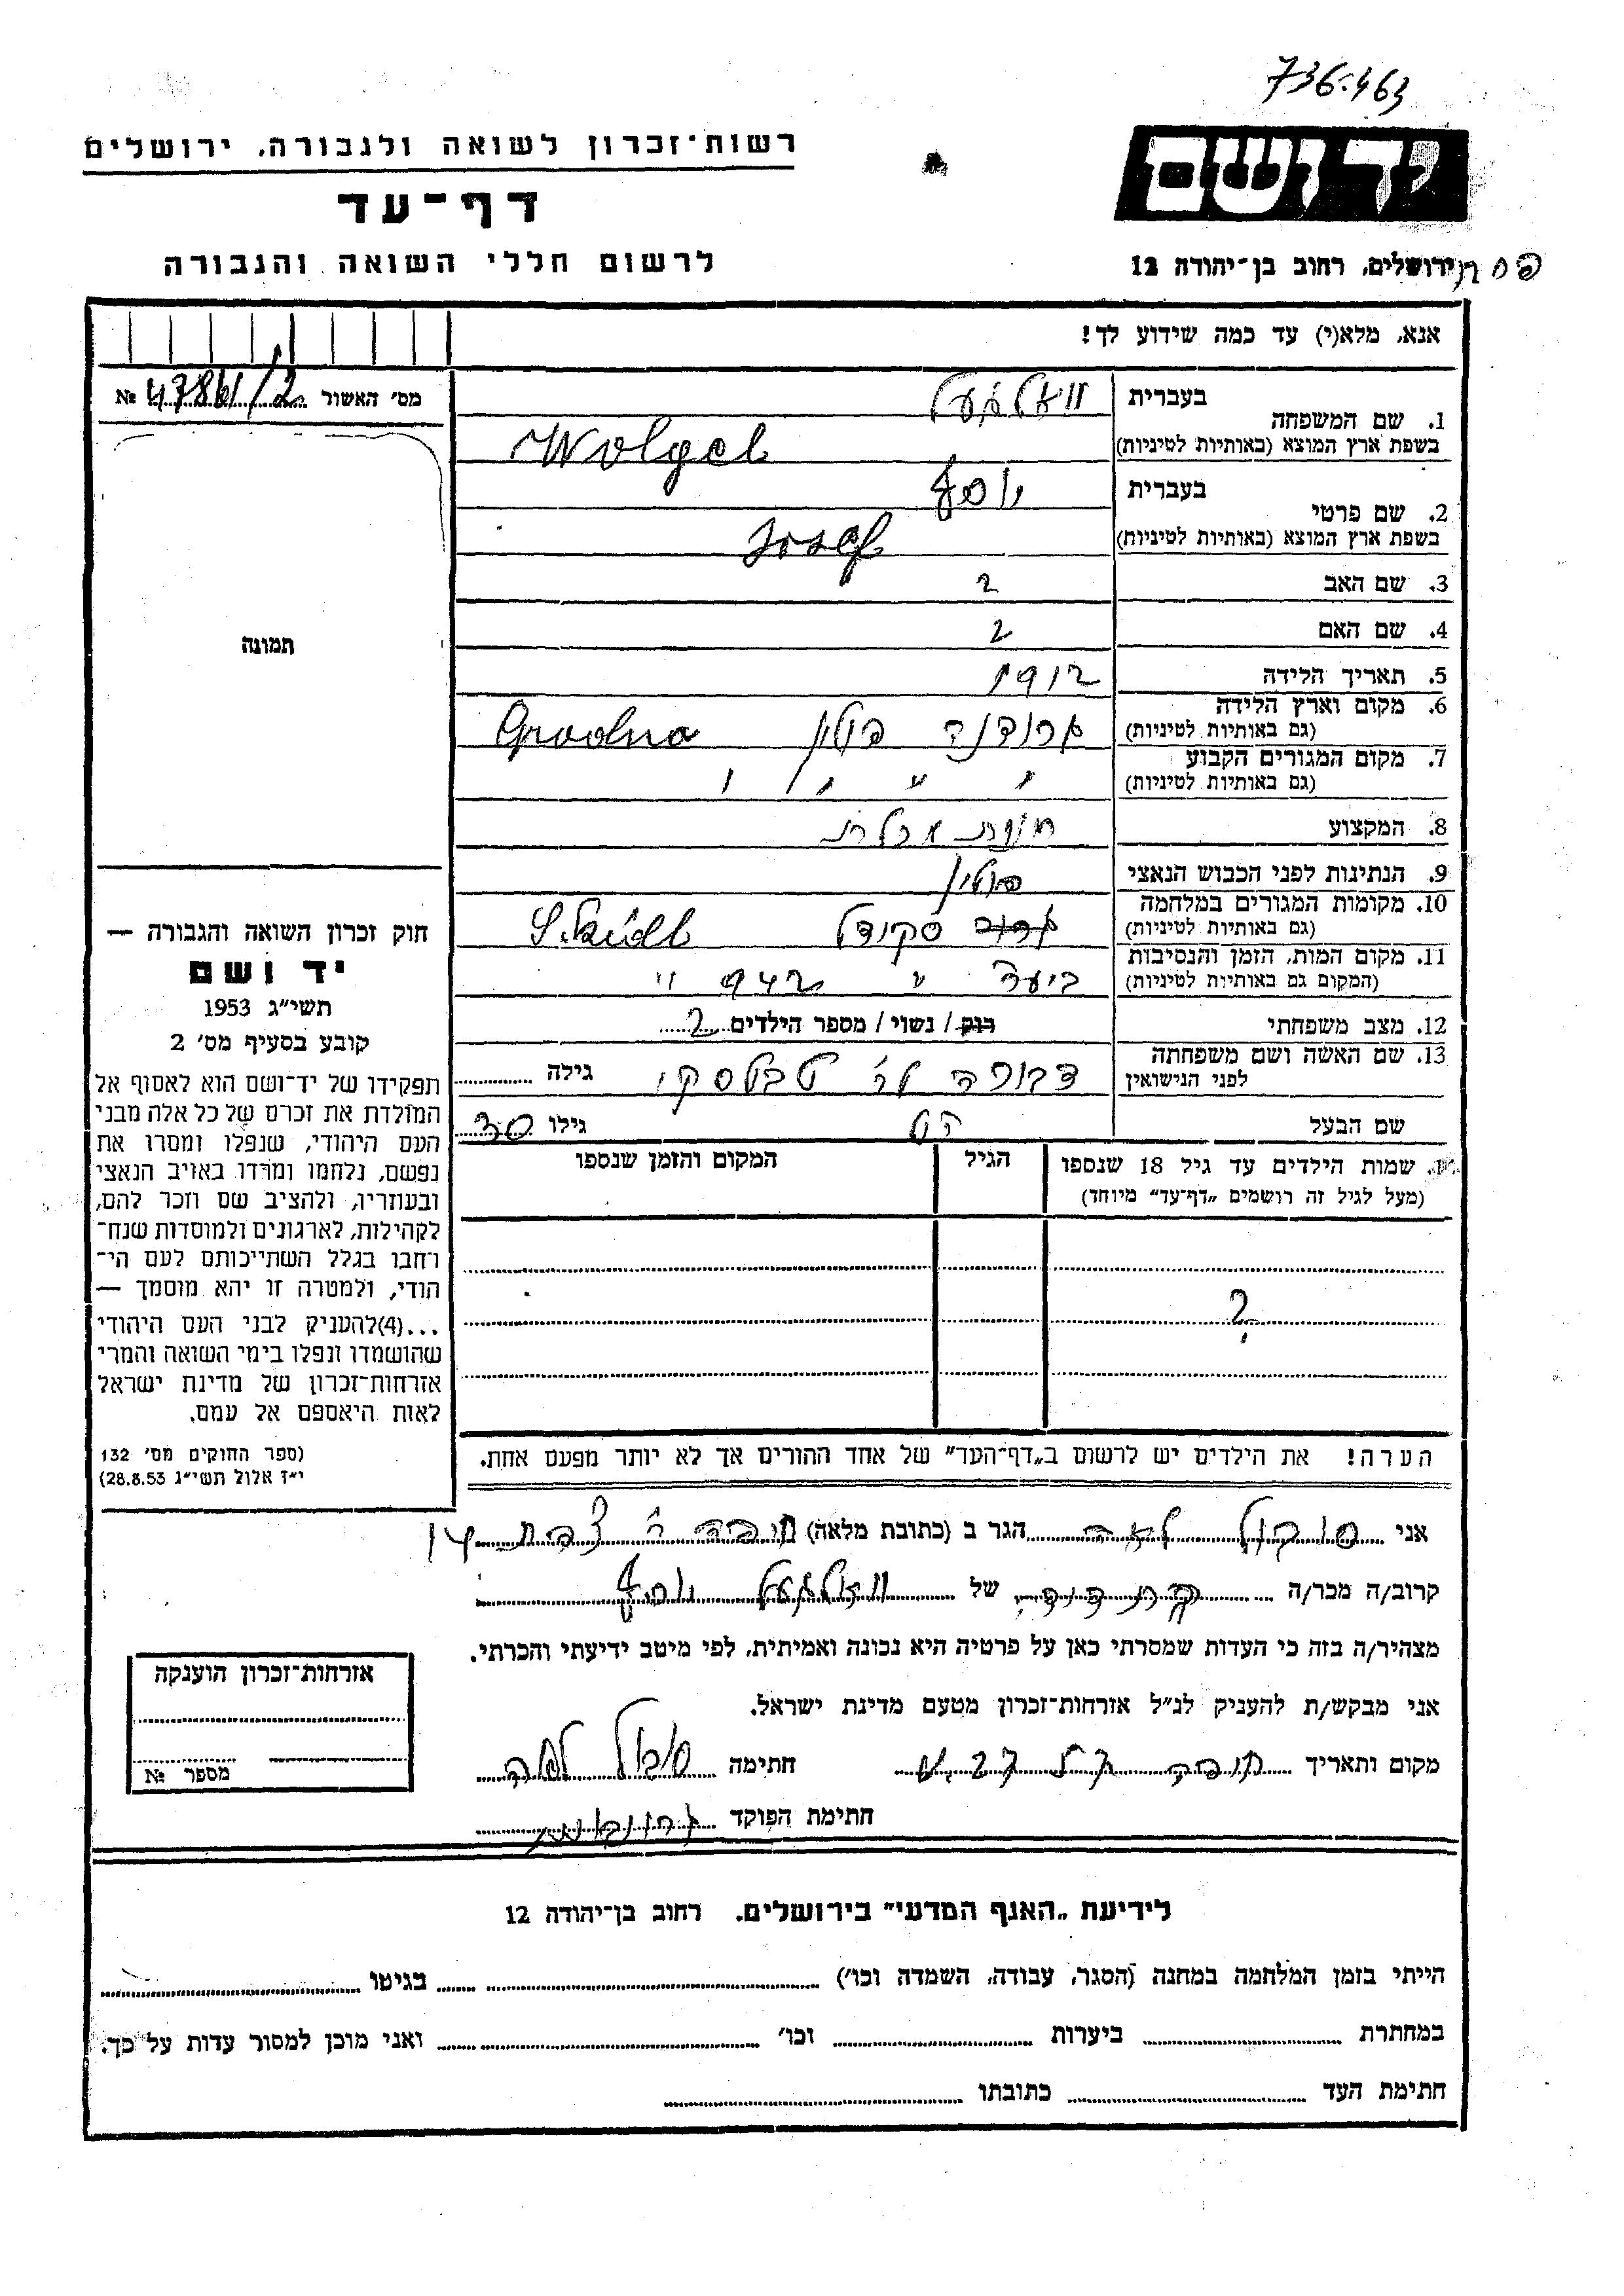 736.463
רשות־זכרון לשואה ולגבורה, ירושלים
דף־עד
לרשום חללי השואה והגבורה
יד ושם
ירושלים, רחוב בן־יהודה 12
אנא, מלא(י) עד כמה שידוע לך!
מס׳ האשור 47861/2 №
תמונה
1. שם המשפחה בעברית וועלגעל
בשפת ארץ המוצא (באותיות לטיניות) Wolgel
2. שם פרטי בעברית יוסף
בשפת ארץ המוצא (באותיות לטיניות) Josef
3. שם האב ?
4. שם האם ?
5. תאריך הלידה 1912
6. מקום וארץ הלידה גרודנה פולין Grodno
(גם באותיות לטיניות)
7. מקום המגורים הקבוע " " " "
(גם באותיות לטיניות)
8. המקצוע חנות מכלת
9. הנתינות לפני הכבוש הנאצי פולין
10. מקומות המגורים במלחמה סקידל Skidl
(גם באותיות לטיניות)
11. מקום המות, הזמן והנסיבות 942
(המקום גם באותיות לטיניות)
12. מצב משפחתי רווק / נשוי / מספר הילדים 2
13. שם האשה ושם משפחתה דבורה גילה
לפני הנישואין
שם הבעל גילו 30
שמות הילדים עד גיל 18 שנספו הגיל המקום והזמן שנספו
(מעל לגיל זה רושמים „דף־עד” מיוחד)
?
הערה! את הילדים יש לרשום ב„דף־העד” של אחד ההורים אך לא יותר מפעם אחת.
חוק זכרון השואה והגבורה —
יד ושם
תשי״ג 1953
קובע בסעיף מס׳ 2
תפקידו של יד־ושם הוא לאסוף אל
המולדת את זכרם של כל אלה מבני
העם היהודי, שנפלו ומסרו את
נפשם, נלחמו ומרדו באויב הנאצי
ובעוזריו, ולהציב שם וזכר להם,
לקהילות, לארגונים ולמוסדות שנח־
רחבו בגלל השתייכותם לעם הי־
הודי, ולמטרה זו יהא מוסמך —
...(4)להעניק לבני העם היהודי
שהושמדו ונפלו בימי השואה והמרי
אזרחות־זכרון של מדינת ישראל
לאות היאספם אל עמם.
(ספר החוקים מס׳ 132
י״ז אלול תשי״ג 28.8.53)
אני סוקול לאה הגר ב (כתובת מלאה) חדרה
קרוב/ה מכר/ה בת דודה של וועלגעל יוסף
מצהיר/ה בזה כי העדות שמסרתי כאן על פרטיה היא נכונה ואמיתית, לפי מיטב ידיעתי והכרתי.
אני מבקש/ת להעניק לנ״ל אזרחות־זכרון מטעם מדינת ישראל.
מקום ותאריך חדרה חתימה סוקול לאה
חתימת הפוקד
אזרחות־זכרון הוענקה
מספר №
לידיעת „האגף המדעי” בירושלים. רחוב בן־יהודה 12
הייתי בזמן המלחמה במחנה (הסגר, עבודה, השמדה וכו׳) בגיטו
במחתרת ביערות וכו׳ ואני מוכן למסור עדות על כך.
חתימת העד כתובתו